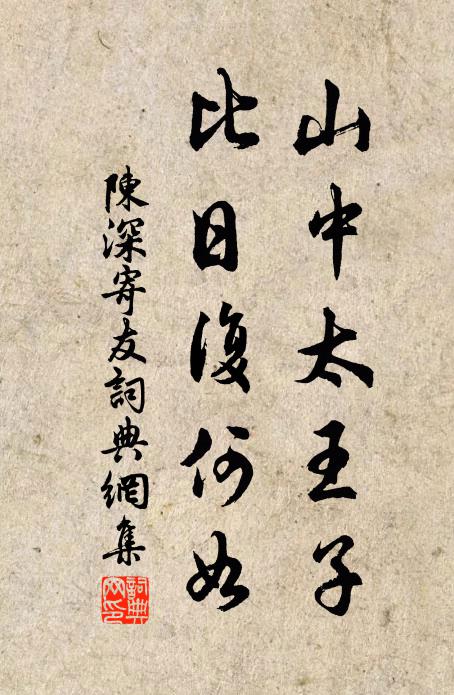 山中太王子
比日復何如
陳深寄友詞典網集
詞典网印